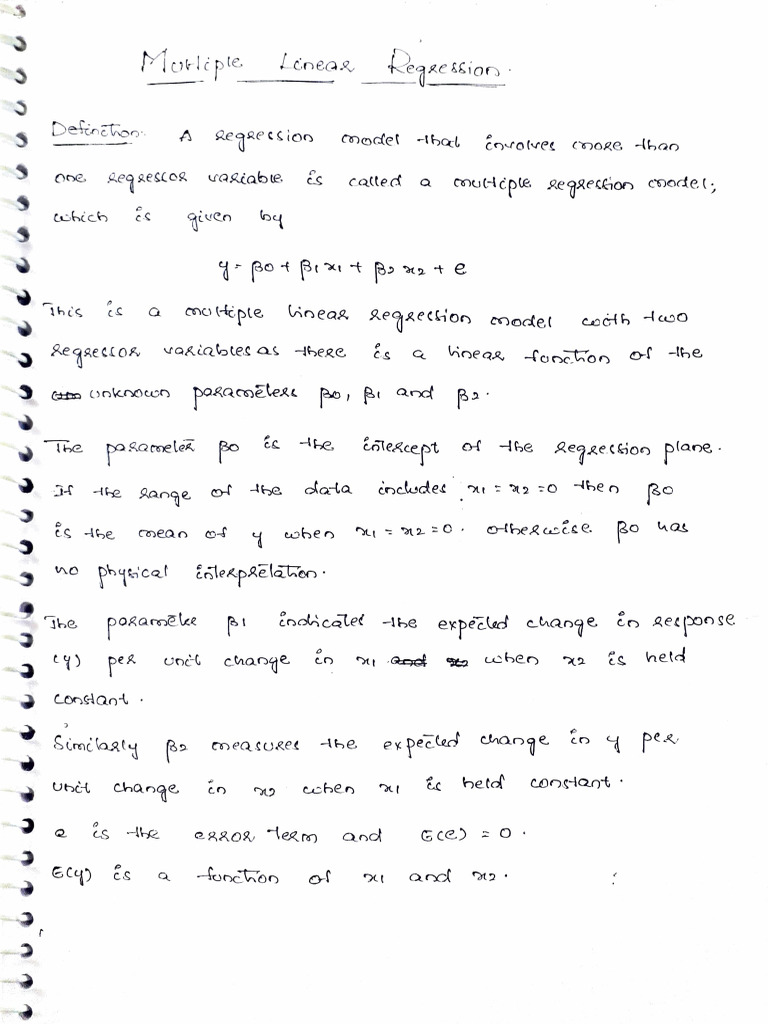 Multiple Linear Regression.
Definction. A regression model that involves more than
one regressor variable is called a multiple regression model;
which is given by
y = β0 + β1 x1 + β2 x2 + e
This is a multiple linear regression model with two
regressor variables as there is a linear function of the
unknown parameters β0, β1 and β2.
The parameter β0 is the intercept of the regression plane.
If the range of the data includes x1 = x2 = 0 then β0
is the mean of y when x1 = x2 = 0. otherwise β0 has
no physical interpretation.
The parameter β1 indicates the expected change in response
(y) per unit change in x1 and x2 when x2 is held
constant.
Similarly β2 measures the expected change in y per
unit change in x2 when x1 is held constant.
e is the error term and E(e) = 0.
E(y) is a function of x1 and x2.